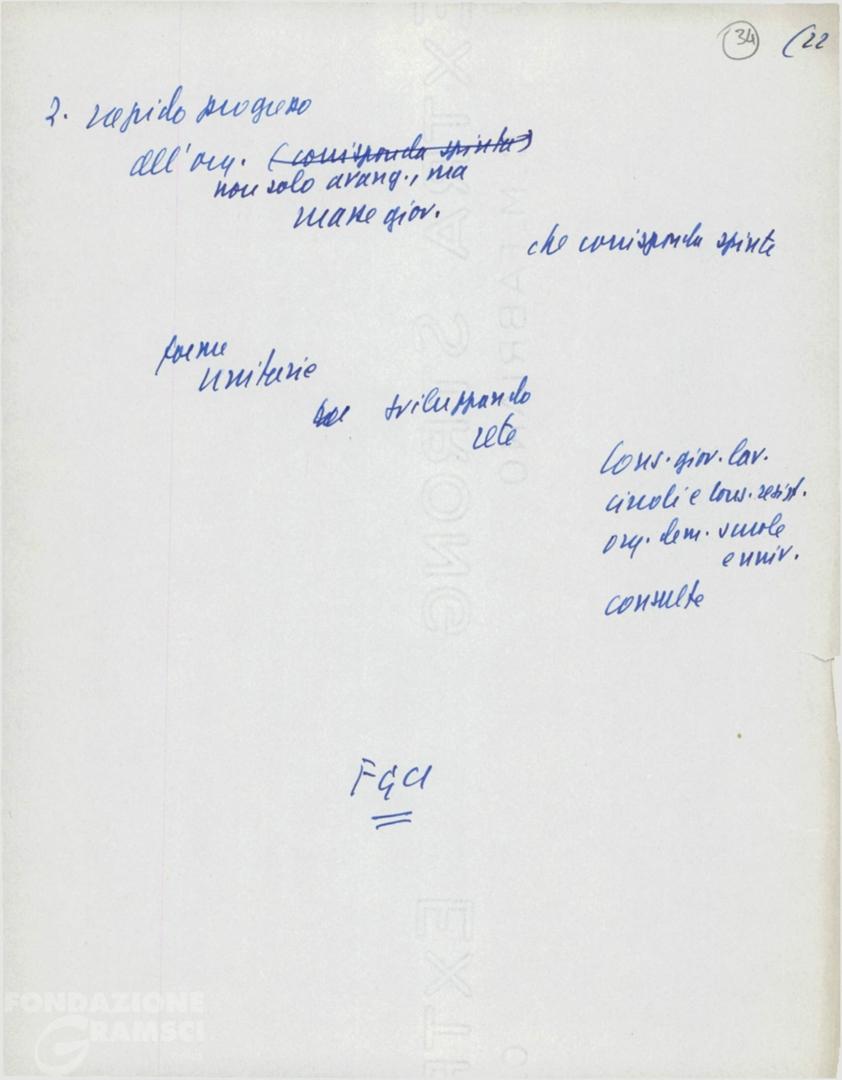 34 (22
2. rapido progresso
dell'org. (corrisponda spinta)
non solo avang., ma
masse giov.
che corrisponda spinta
forme
unitarie
sviluppando
rete
Cons. giov. lav.
circoli e cons. resist.
org. dem. scuole
e univ.
consulte
FGCI
FONDAZIONE
GRAMSCI